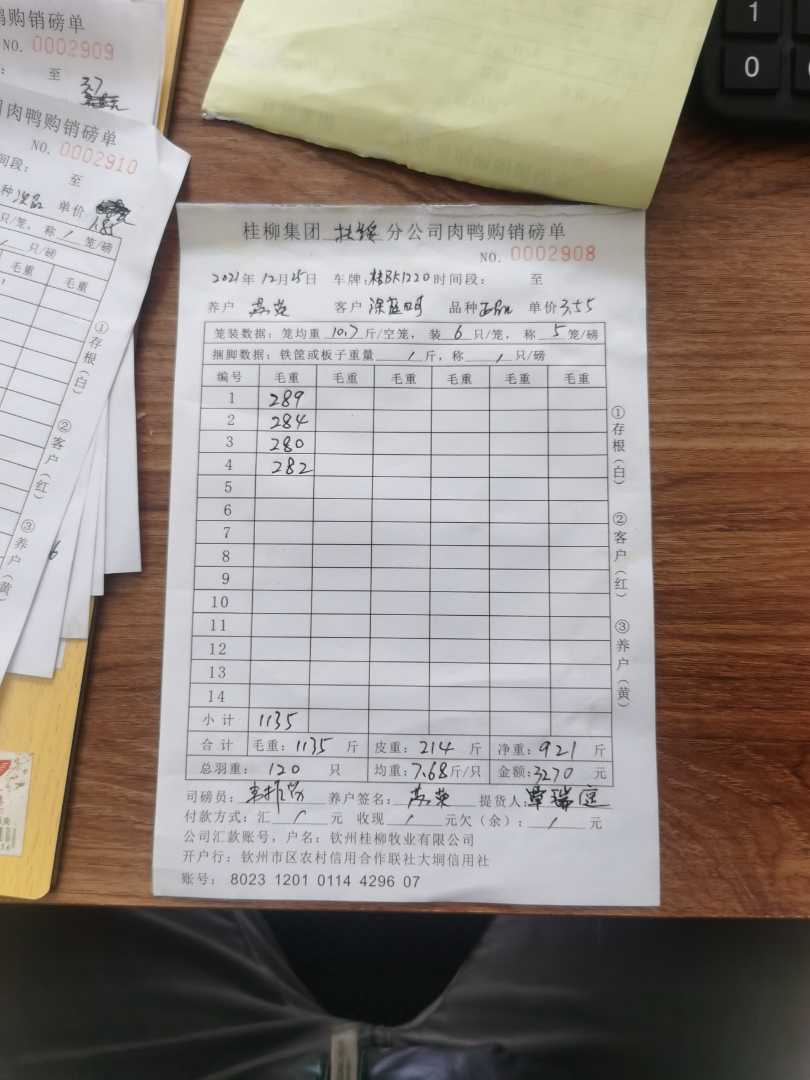 鸭购销磅单
NO. 0002909
至
3.7
肉鸭购销磅单
NO. 0002910
间段: 至
种 单价
只/笼, 称 / 笼/磅
/ 只/磅
毛重 毛重
①存根(白) ②客户(红) ③养户(黄
1
0
桂柳集团 扶绥 分公司肉鸭购销磅单
NO. 0002908
2021年 12月25日 车牌:桂BK1220 时间段: 至
养户 客户 品种 单价 3.55
笼装数据: 笼均重 10.7 斤/空笼, 装 6 只/笼, 称 5 笼/磅
捆脚数据: 铁筐或板子重量 / 斤, 称 / 只/磅
编号 毛重 毛重 毛重 毛重 毛重 毛重
1 289
2 284
3 280
4 282
5
6
7
8
9
10
11
12
13
14
小计 1135
合计 毛重: 1135 斤 皮重: 214 斤 净重: 921 斤
总羽重: 120 只 均重: 7.68 斤/只 金额: 3270 元
①存根(白) ②客户(红) ③养户(黄)
司磅员: 养户签名: 提货人: 覃瑞庭
付款方式: 汇 / 元 收现 / 元欠(余): / 元
公司汇款账号, 户名: 钦州桂柳牧业有限公司
开户行: 钦州市区农村信用合作联社大垌信用社
账号: 8023 1201 0114 4296 07